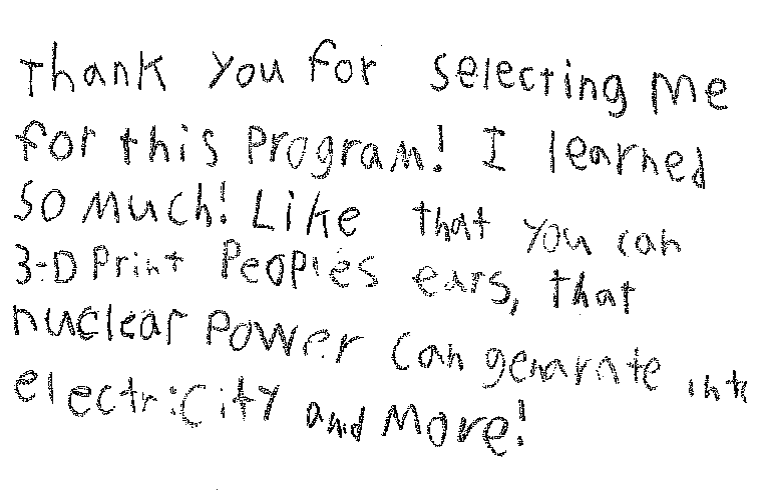 Thank you for selecting me
for this program! I learned
so much! Like that you can
3-D Print Peoples ears, that
nuclear power can genarate into
electricity and more!